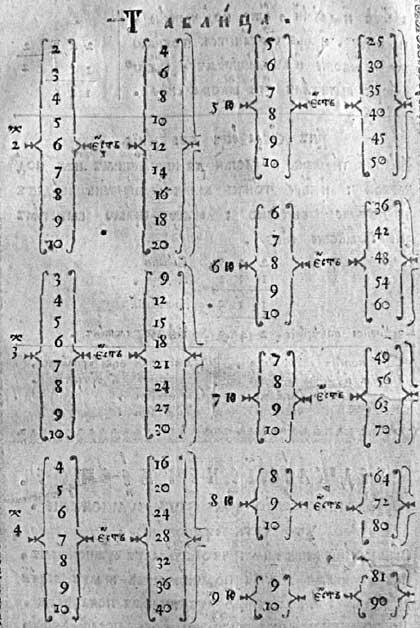 Таблица.
2 4
3 6
4 8
5 10
2ж 6 есть 12
7 14
8 16
9 18
10 20
3 9
4 12
5 15
6 18
3ж 7 есть 21
8 24
9 27
10 30
4 16
5 20
6 24
4ж 7 есть 28
8 32
9 36
10 40
5 25
6 30
7 35
5ю 8 есть 40
9 45
10 50
6 36
7 42
6ю 8 есть 48
9 54
10 60
7 49
8 56
7ю 9 есть 63
10 70
8 64
8ю 9 есть 72
10 80
9 81
9ю есть
10 90